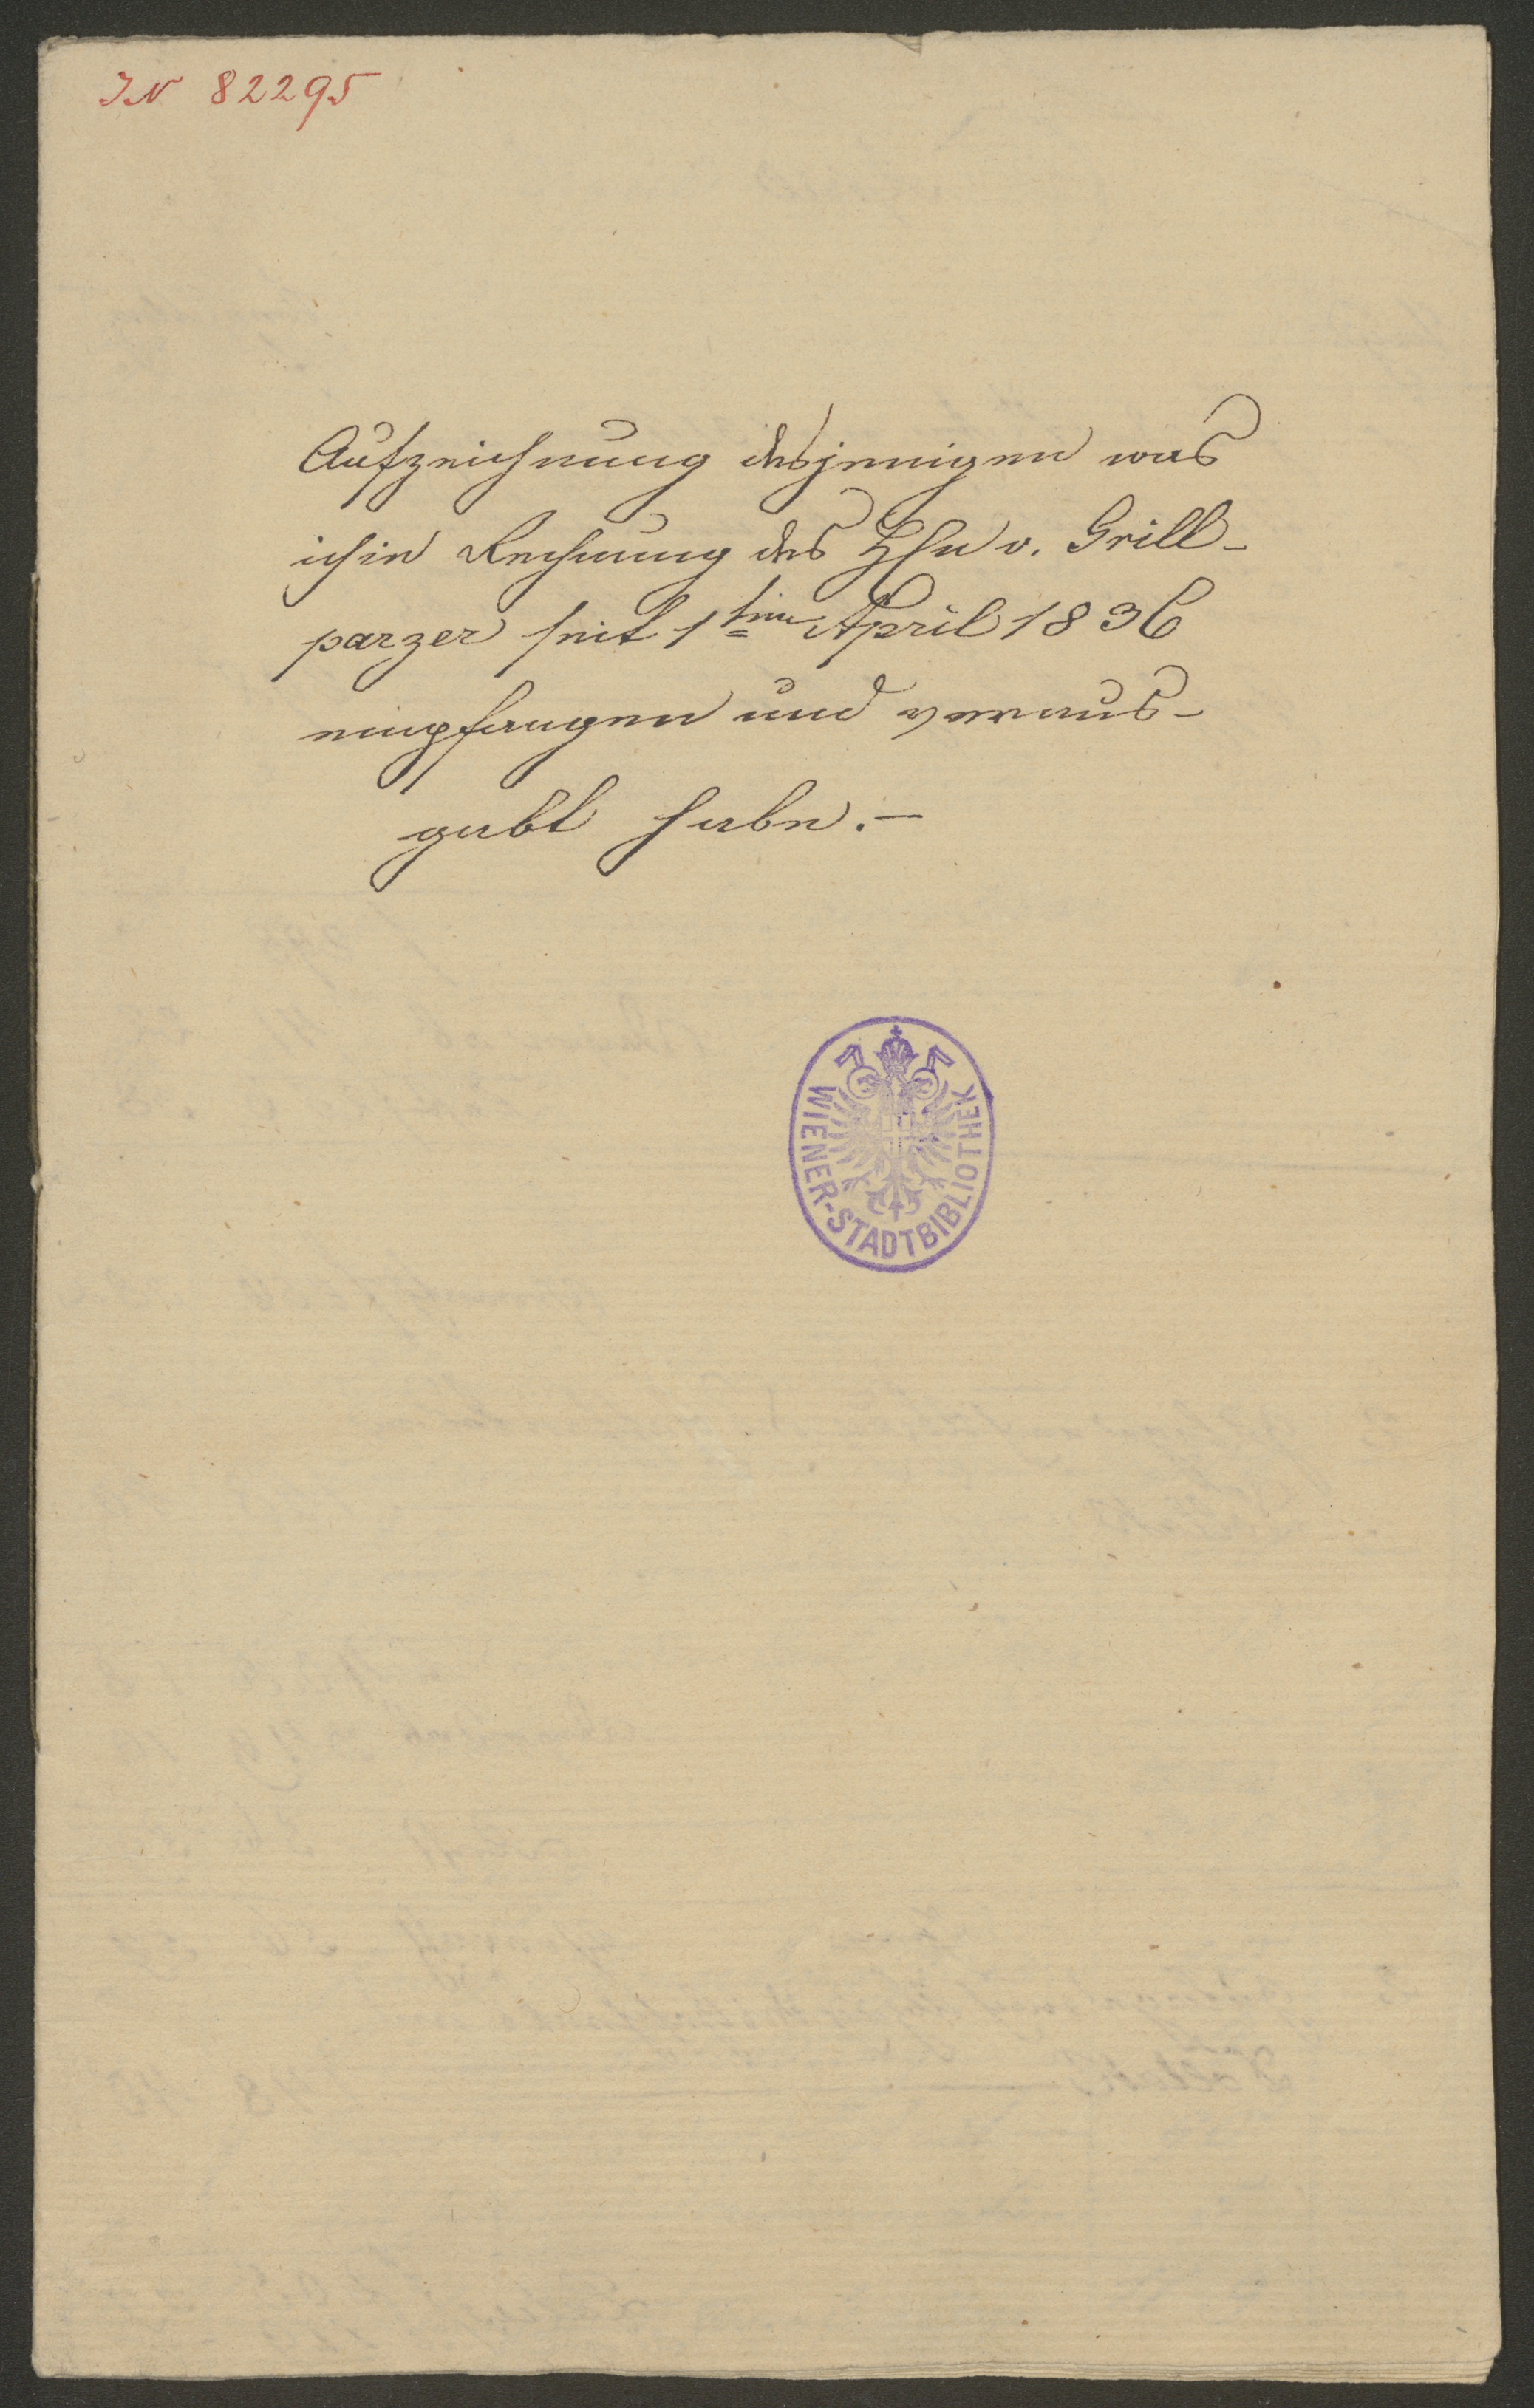 IN 82295
Aufzeichnung desjenigen was
ich in Rechnung des H v. Grill-
parzer seit 1ten April 1836
empfangen und veraus-
gabt habe.-
WIENER-STADTBIBLIOTHEK